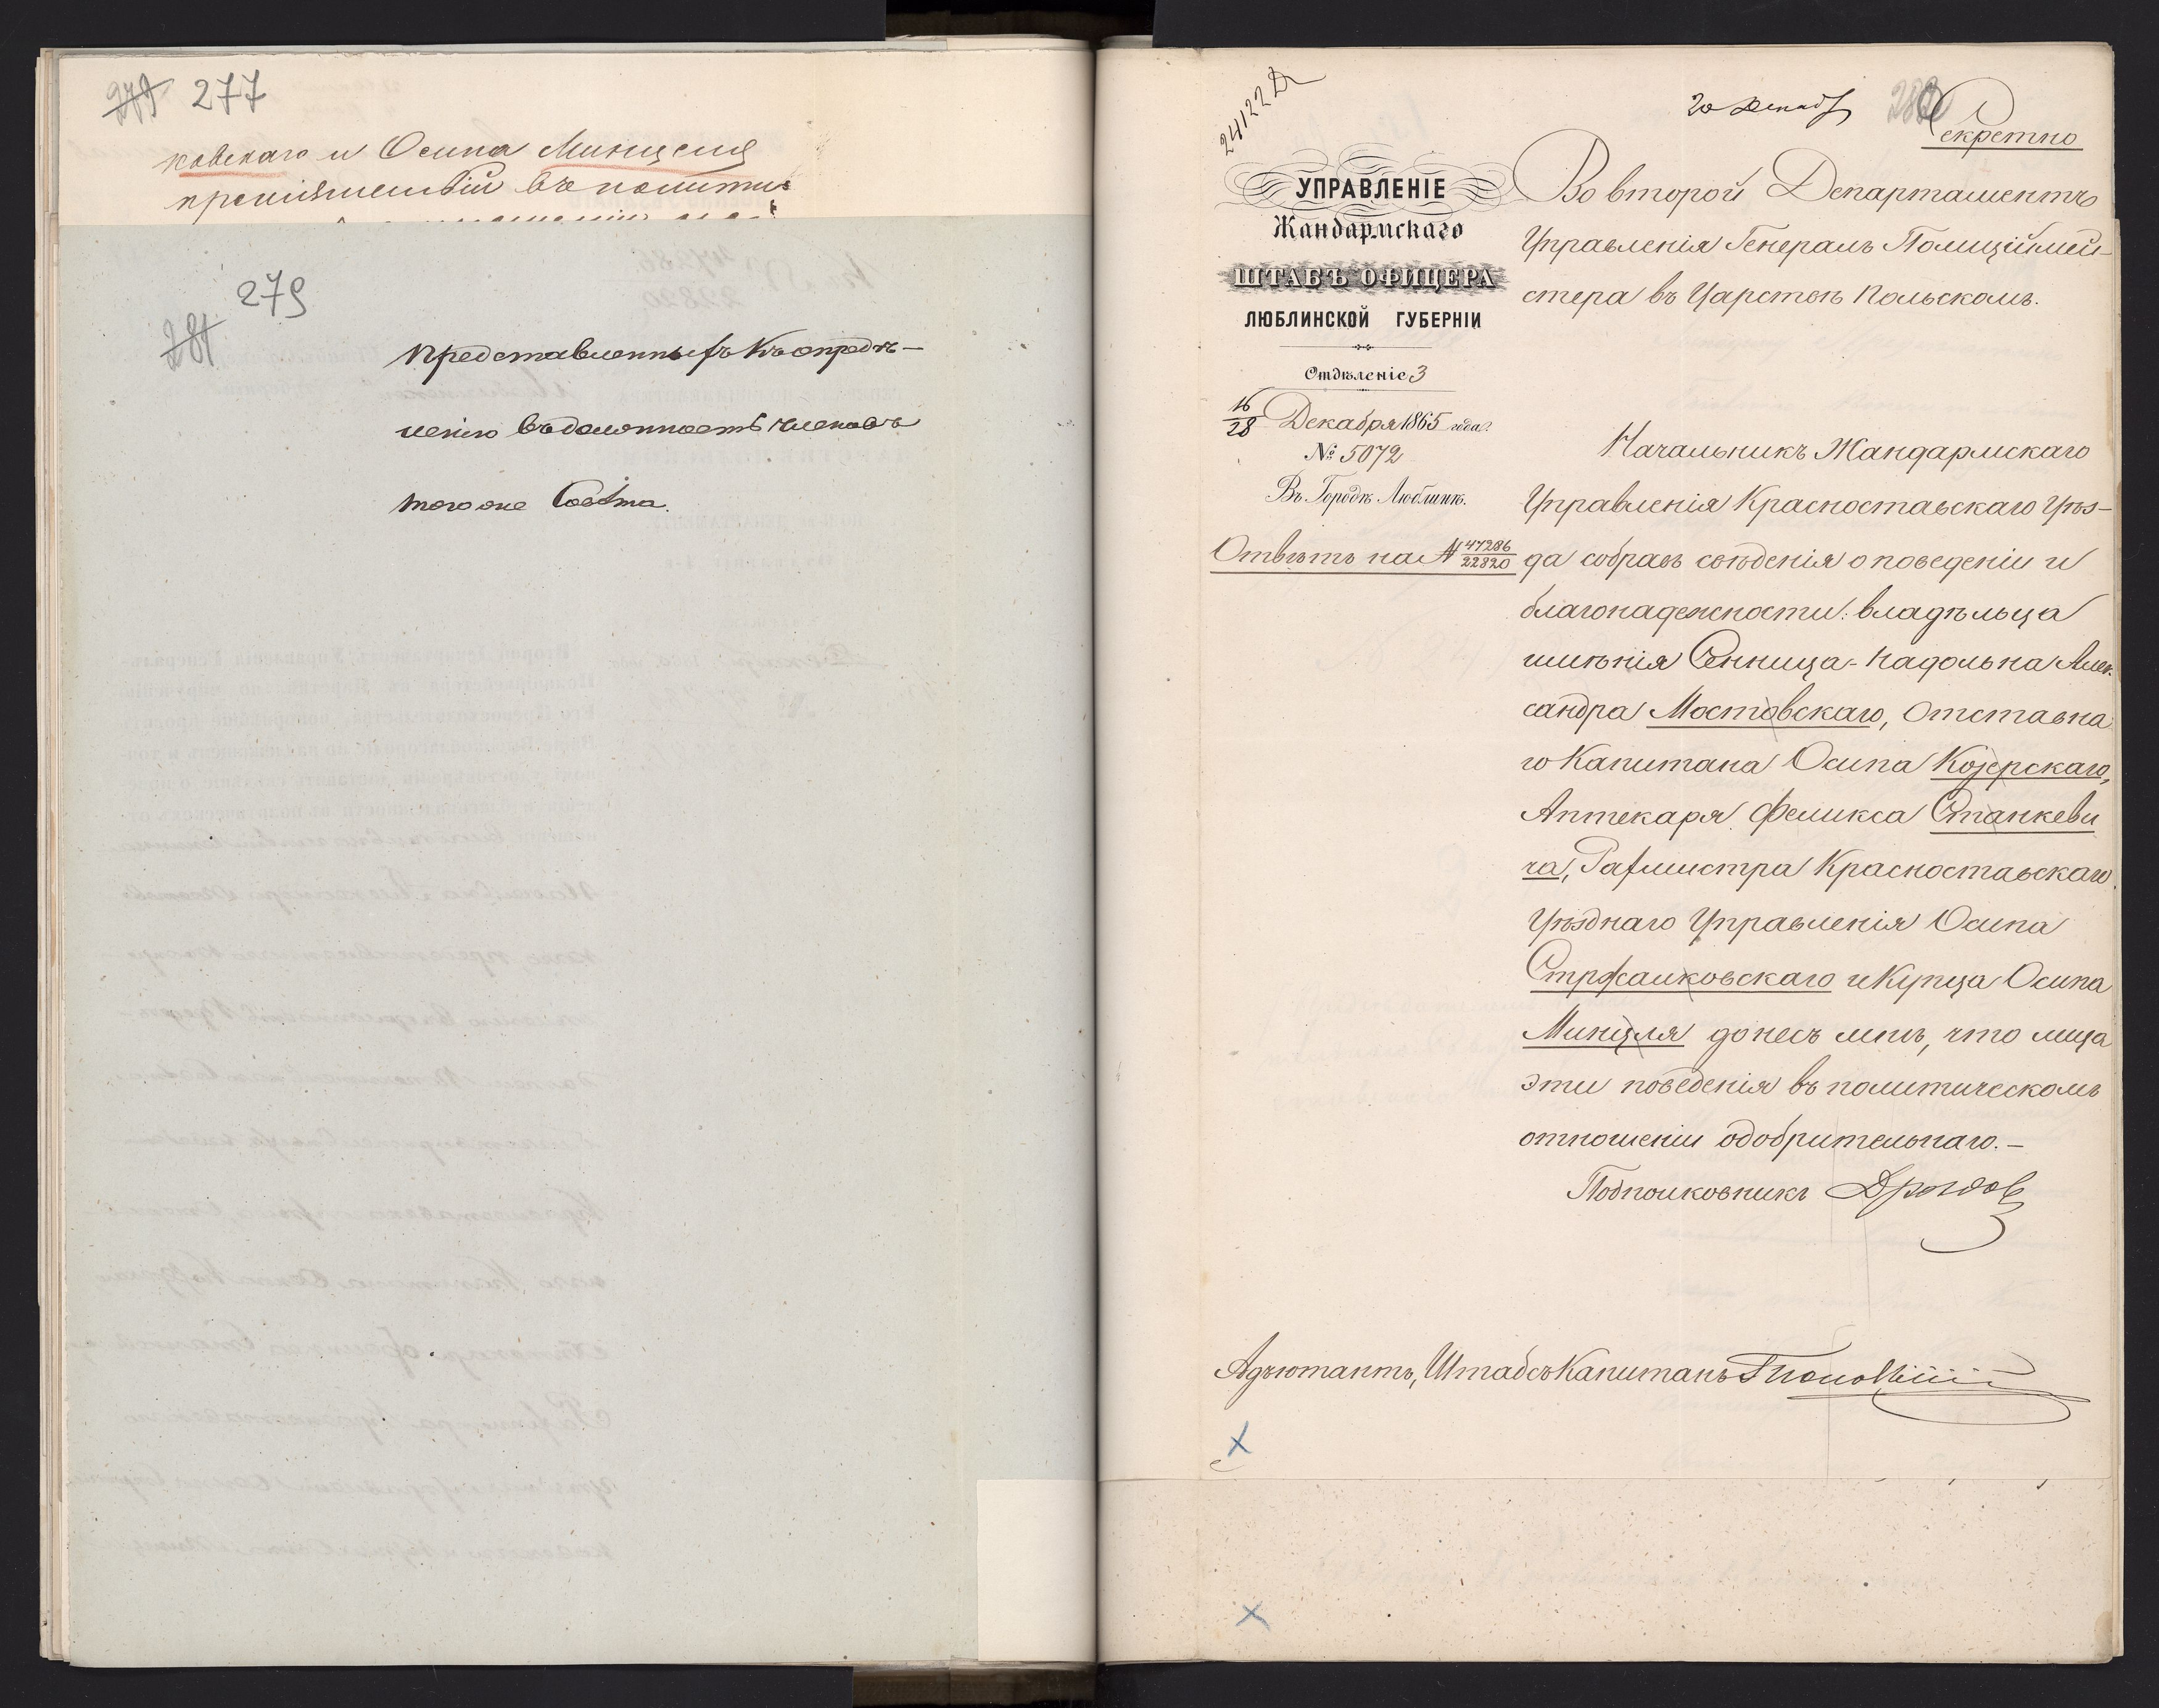 279 277
ковскаго и Осипа Минцеля
препятствій въ полити-
279
281
представленныхъ къ опредѣ-
ленію въ должность членовъ
того же Совѣта.
24122
20 Декаб
Секретно
УПРАВЛЕНІЕ
Жандармскаго
ШТАБЪ ОФИЦЕРА
ЛЮБЛИНСКОЙ ГУБЕРНІИ
Отдѣленіе 3
16/28 Декабря 1865 года.
№ 5072
Въ Городѣ Люблинѣ.
Отвѣтъ на № 47286/22820
Во второй Департаментъ
Управленія Генералъ Полиціймей-
стера въ Царствѣ Польскомъ.
Начальникъ Жандармскаго
Управленія Красноставскаго Уѣз-
да собравъ свѣденія о поведеніи и
благонадежности: владѣльца
имѣнія Сенница-Надольна Алек-
сандра Мостовскаго, Отставна
го Капитана Осипа Козерскаго,
Аптекаря Феликса Станкеви
ча, Рахмистра Красноставскаго
Уѣзднаго Управленія Осипа
Стржалковскаго и Купца Осипа
Минцля донесъ мнѣ, что лица
эти поведенія въ политическомъ
отношеніи одобрительнаго.—
Подполковникъ Дроздов
Адъютантъ, Штабсъ Капитанъ